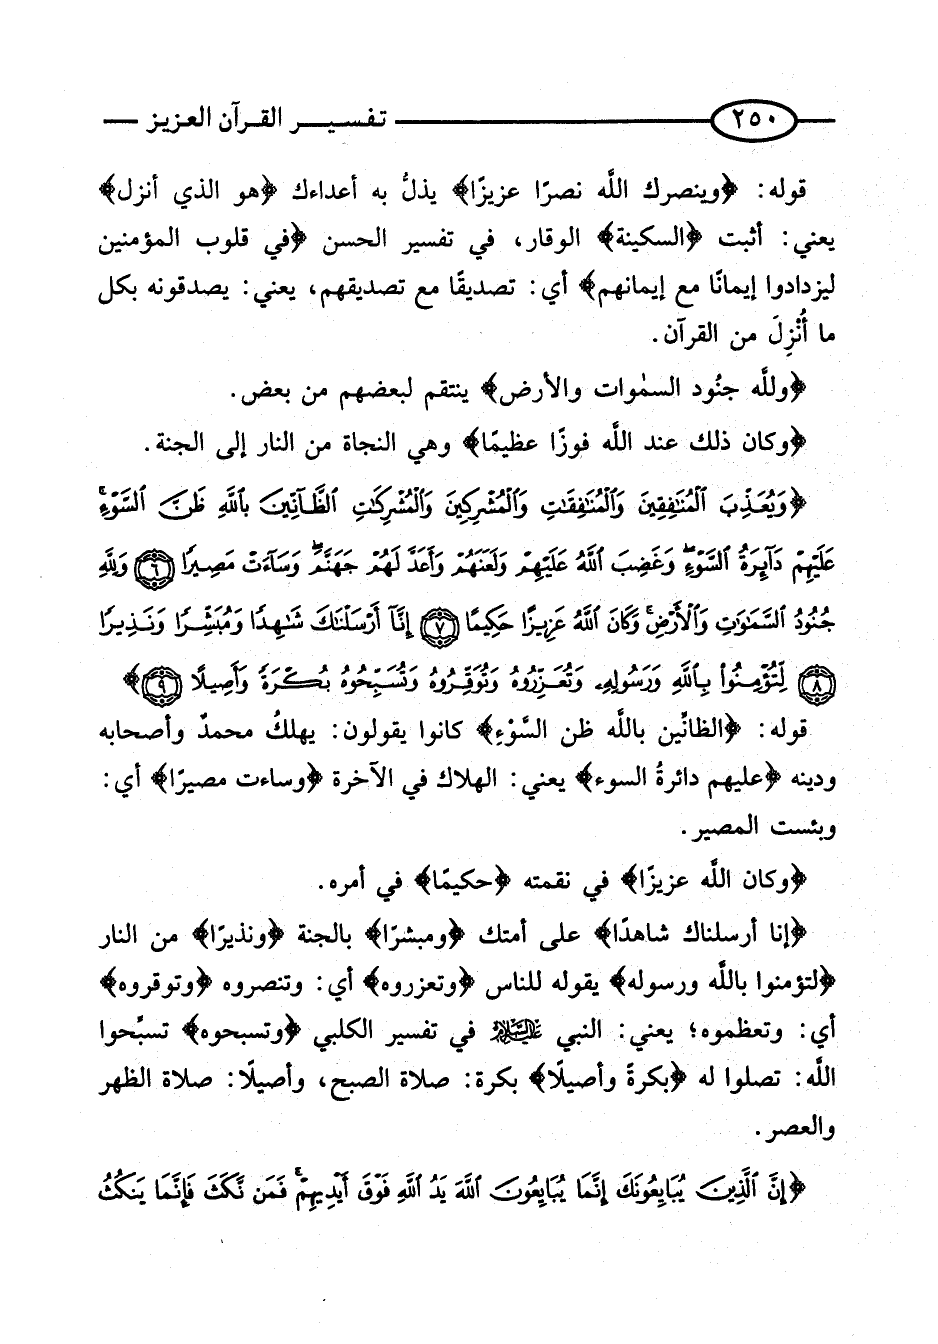 ٢٥٠ تفسير القرآن العزيز
قوله: ﴿وينصرك اللَّه نصرًا عزيزًا﴾ يذلُّ به أعداءك ﴿هو الذي أنزل﴾
يعني: أثبت ﴿السكينة﴾ الوقار، في تفسير الحسن ﴿في قلوب المؤمنين
ليزدادوا إيمانًا مع إيمانهم﴾ أي: تصديقًا مع تصديقهم، يعني: يصدقونه بكل
ما أُنْزِلَ من القرآن.
﴿وللَّه جنُود السمٰوات والأرض﴾ ينتقم لبعضهم من بعض.
﴿وكان ذلك عند اللَّه فوزًا عظيمًا﴾ وهي النجاة من النار إلى الجنة.
﴿وَيُعَذِّبَ ٱلْمُنَٰفِقِينَ وَٱلْمُنَٰفِقَٰتِ وَٱلْمُشْرِكِينَ وَٱلْمُشْرِكَٰتِ ٱلظَّآنِّينَ بِٱللَّهِ ظَنَّ ٱلسَّوْءِۚ
عَلَيْهِمْ دَآئِرَةُ ٱلسَّوْءِۖ وَغَضِبَ ٱللَّهُ عَلَيْهِمْ وَلَعَنَهُمْ وَأَعَدَّ لَهُمْ جَهَنَّمَۖ وَسَآءَتْ مَصِيرًا ٦ وَلِلَّهِ
جُنُودُ ٱلسَّمَٰوَٰتِ وَٱلْأَرْضِۚ وَكَانَ ٱللَّهُ عَزِيزًا حَكِيمًا ٧ إِنَّآ أَرْسَلْنَٰكَ شَٰهِدًا وَمُبَشِّرًا وَنَذِيرًا
٨ لِتُؤْمِنُوا۟ بِٱللَّهِ وَرَسُولِهِۦ وَتُعَزِّرُوهُ وَتُوَقِّرُوهُ وَتُسَبِّحُوهُ بُكْرَةً وَأَصِيلًا ٩﴾
قوله: ﴿الظانِّين باللَّه ظن السَّوْءِ﴾ كانوا يقولون: يهلكُ محمدٌ وأصحابه
ودينه ﴿عليهم دائرةُ السوء﴾ يعني: الهلاك في الآخرة ﴿وساءت مصيرًا﴾ أي:
وبئست المصير.
﴿وكان اللَّه عزيزًا﴾ في نقمته ﴿حكيمًا﴾ في أمره.
﴿إنا أرسلناك شاهدًا﴾ على أمتك ﴿ومبشرًا﴾ بالجنة ﴿ونذيرًا﴾ من النار
﴿لتؤمنوا باللَّه ورسوله﴾ يقوله للناس ﴿وتعزروه﴾ أي: وتنصروه ﴿وتوقروه﴾
أي: وتعظموه؛ يعني: النبي عليه السلام في تفسير الكلبي ﴿وتسبحوه﴾ تسبِّحوا
اللَّه: تصلوا له ﴿بكرةً وأصيلًا﴾ بكرة: صلاة الصبح، وأصيلًا: صلاة الظهر
والعصر.
﴿إِنَّ ٱلَّذِينَ يُبَايِعُونَكَ إِنَّمَا يُبَايِعُونَ ٱللَّهَ يَدُ ٱللَّهِ فَوْقَ أَيْدِيهِمْۚ فَمَن نَّكَثَ فَإِنَّمَا يَنكُثُ